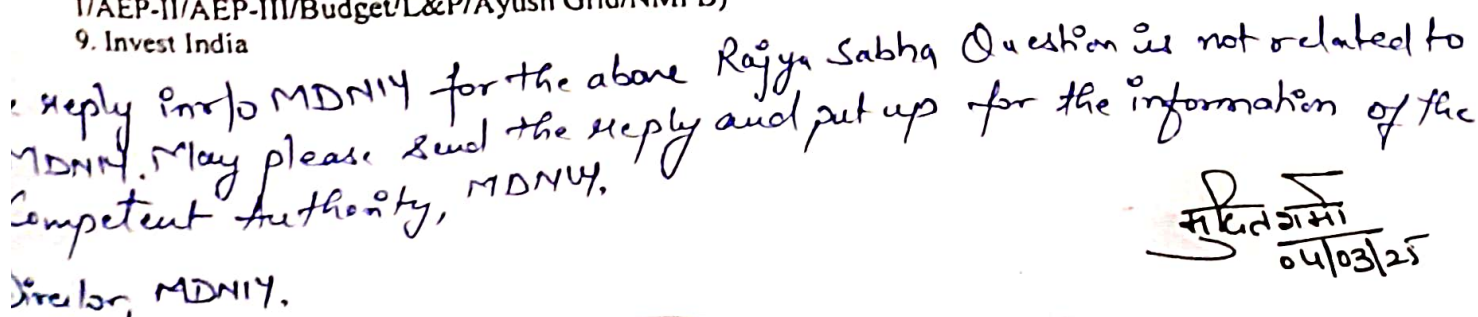 I/AEP-II/AEP-III/Budget/L&P/Ayush Grid/NMPB)
9. Invest India
reply in r/o MDNIY for the above Rajya Sabha Question is not related to
MDNIY. May please send the reply and put up for the information of the
Competent Authority, MDNIY.
04/03/25
Director, MDNIY.